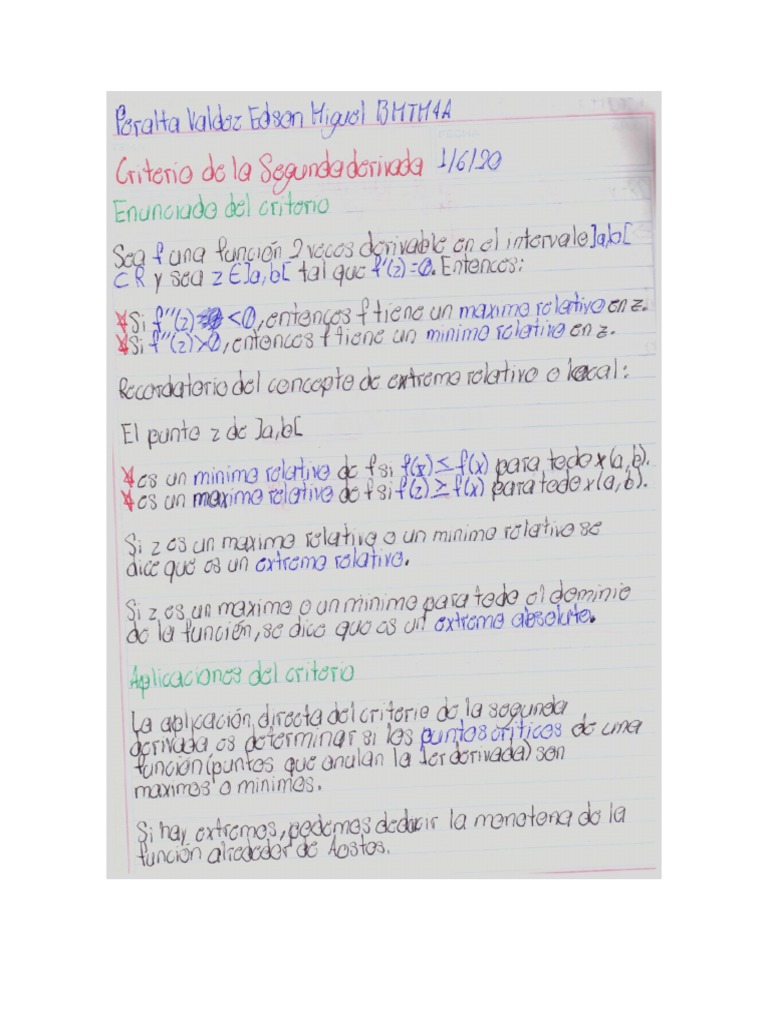 Peralta Valdez Edson Miguel BMTM4A
Criterio de la Segunda derivada 1/6/20
Enunciado del criterio
Sea f una función 2 veces derivable en el intervalo ]a,b[
C R y sea z ∈ ]a,b[ tal que f'(z)=0. Entonces:
Si f''(z) <0, entonces f tiene un maximo relativo en z.
Si f''(z)>0, entonces f tiene un minimo relativo en z.
Recordatorio del concepto de extremo relativo o local:
El punto z de ]a,b[
es un minimo relativo de f si f(x) ≤ f(x) para todo x (a,b).
es un maximo relativo de f si f(z) ≥ f(x) para todo x (a,b).
Si z es un maximo relativo o un minimo relativo se
dice que es un extremo relativo.
Si z es un maximo o un minimo para todo el dominio
de la función, se dice que es un extremo absoluto.
Aplicaciones del criterio
La aplicación directa del criterio de la segunda
derivada es determinar si los puntos criticos de una
función (puntos que anulan la 1er derivada) son
maximos o minimos.
Si hay extremos, podemos deducir la monotona de la
función alrededor de